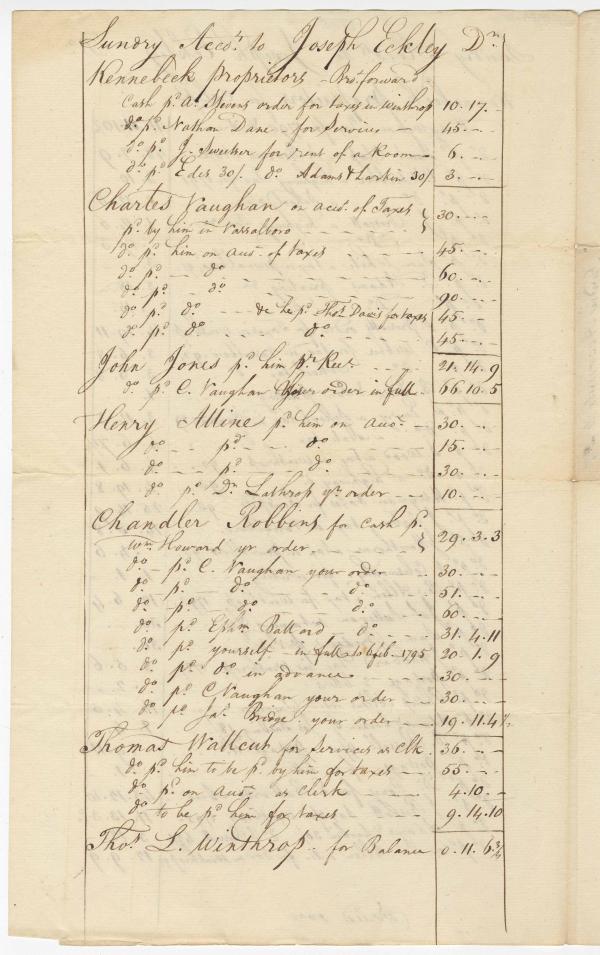 Sundry Accots to Joseph Eckley Dr.
Kennebeck Proprietors - Bro't forward
Cash pd A. Stevens order for taxes in Winthrop 10.17.-
do pd Nathan Dane - for Services - 45.-.-
do pd J. Sweetser for rent of a Room - 6.-.-
do pd Edes 30/. do Adams & Larkin 30/ 3.-.-
Charles Vaughan on accot. of Taxes } 30.-.-
pd by him in Vassalboro
do pd him on accot. of taxes 45.-.-
do pd - do - 60.-.-
do pd - do 90.-.-
do pd do - & he pd Thos Davis for taxes 45.-.-
do pd do - do 45.-.-
John Jones pd him pr Rect 21.14.9
do pd C. Vaughan your order in full 66.10.5
Henry Alline pd him on accot - 30.-.-
do - - pd - - do 15.-.-
do - - pd - do 30.-.-
do pd Dr Lathrop yr order - - 10.-.-
Chandler Robbins for Cash pd } 29.3.3
Wm Howard yr order
do - pd C. Vaughan your order 30.-.-
do pd - do do 51.-.-
do - pd - do do - 60.-.-
do pd Ephm Ballard do - 31.4.11
do pd yourself - in full to feb. 1795 20.1.9
do pd do in advance 30.-.-
do pd C Vaughan your order - - 30.-.-
do pd Jas Bridge your order - - 19.11.4½
Thomas Wallcut for Services as Clk. 36.-.-
do pd him to be pd by him for taxes - - 55.-.-
do pd on accot. as Clerk 4.10.-
do to be pd him for taxes - - 9.14.10
Thos L. Winthrop for Balance 0.11.6¾